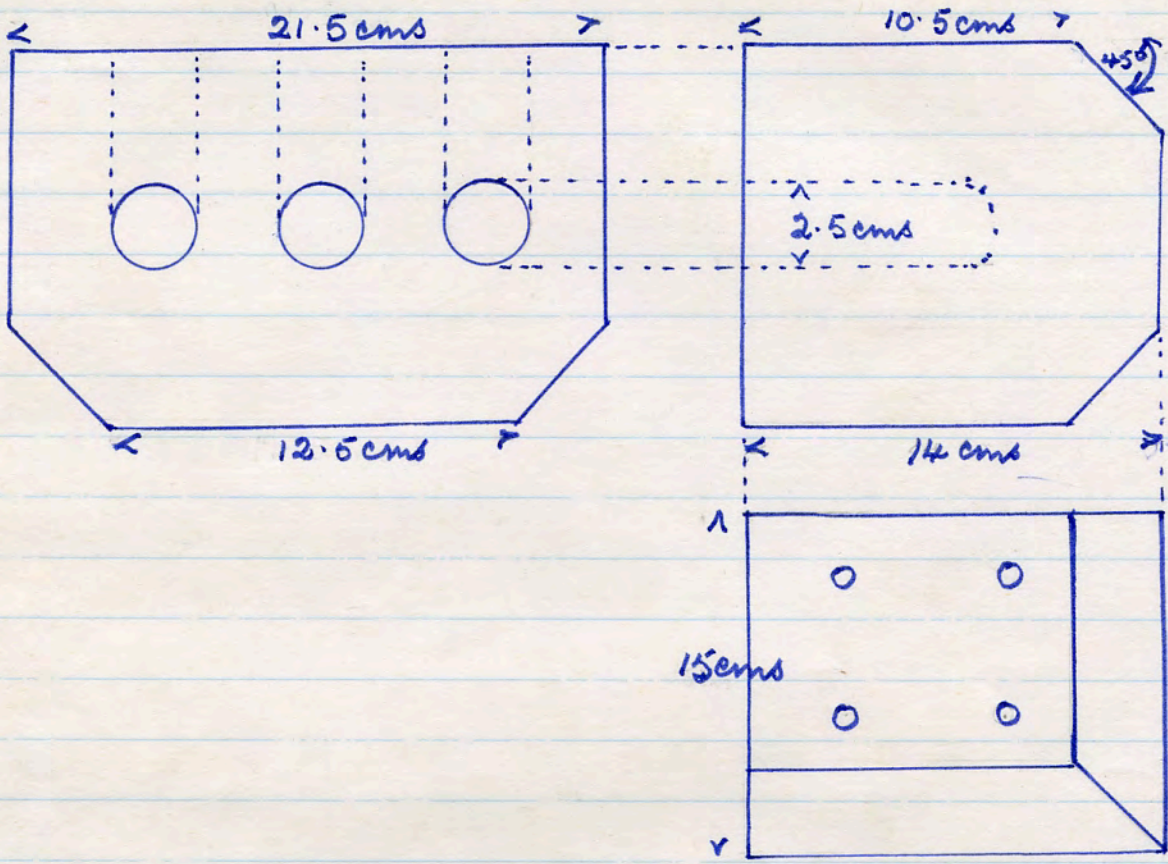 21.5 cms
10.5 cms
45°
2.5 cms
12.5 cms
14 cms
15 cms